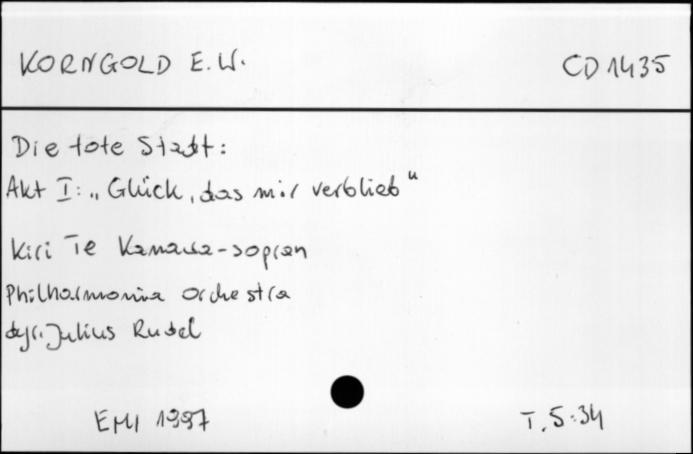 KORNGOLD E.W.
CD 1435
Die tote Stadt:
Akt I: „Glück, das mir verblieb"
Kiri Te Kanawa - sopran
Philharmonia Orchestra
dyr. Julius Rudel
EMI 1997
T. 5:34